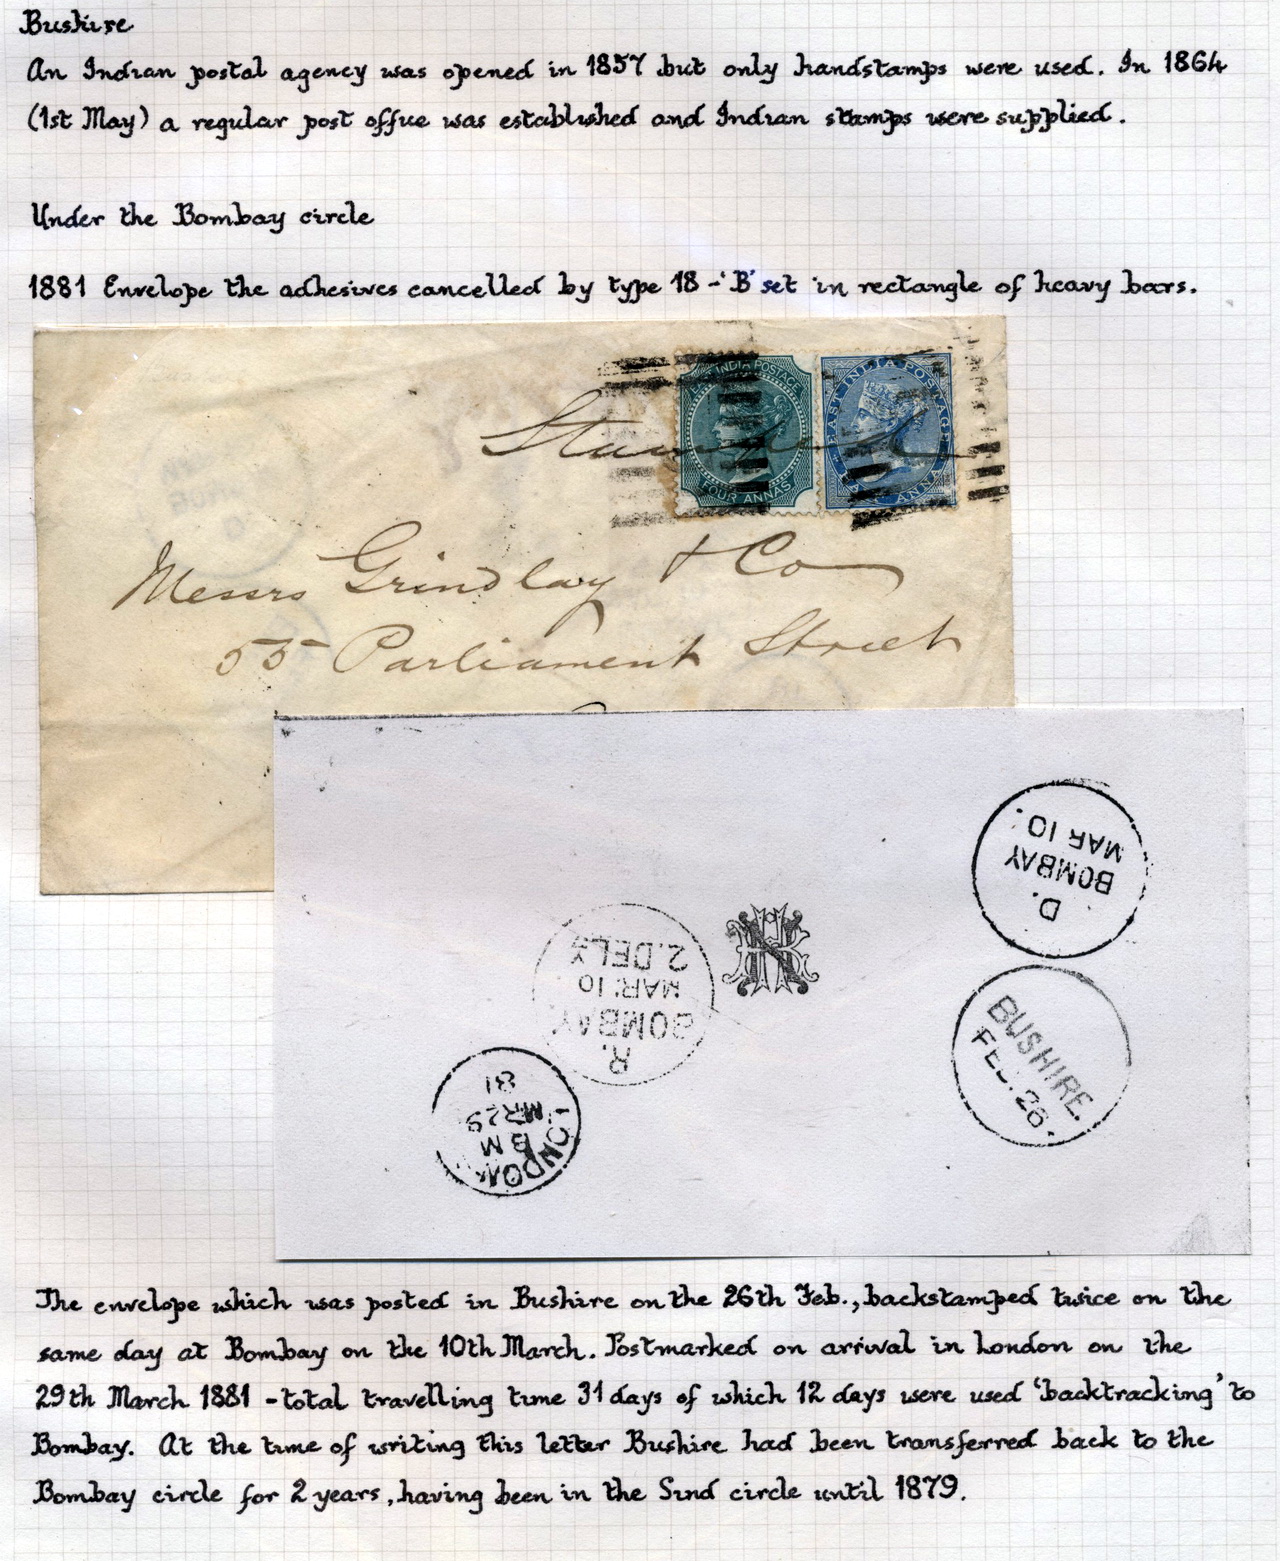 Bushire
An Indian postal agency was opened in 1857 but only handstamps were used. In 1864
(1st May) a regular post office was established and Indian stamps were supplied.
Under the Bombay circle
1881 Envelope the adhesives cancelled by type 18 - 'B' set in rectangle of heavy bars.
EAST INDIA POSTAGE
FOUR ANNAS
EAST INDIA POSTAGE
HALF ANNA
Stamped
Messrs Grindlay & Co
55 Parliament Street
D.
BOMBAY
MAR 10.
R.
BOMBAY
MAR: 10
2.DELY
BUSHIRE.
FEB. 26.
LONDON
B M
MR29
81
The envelope which was posted in Bushire on the 26th Feb., backstamped twice on the
same day at Bombay on the 10th March. Postmarked on arrival in London on the
29th March 1881 - total travelling time 31 days of which 12 days were used 'backtracking' to
Bombay. At the time of writing this letter Bushire had been transferred back to the
Bombay circle for 2 years, having been in the Sind circle until 1879.